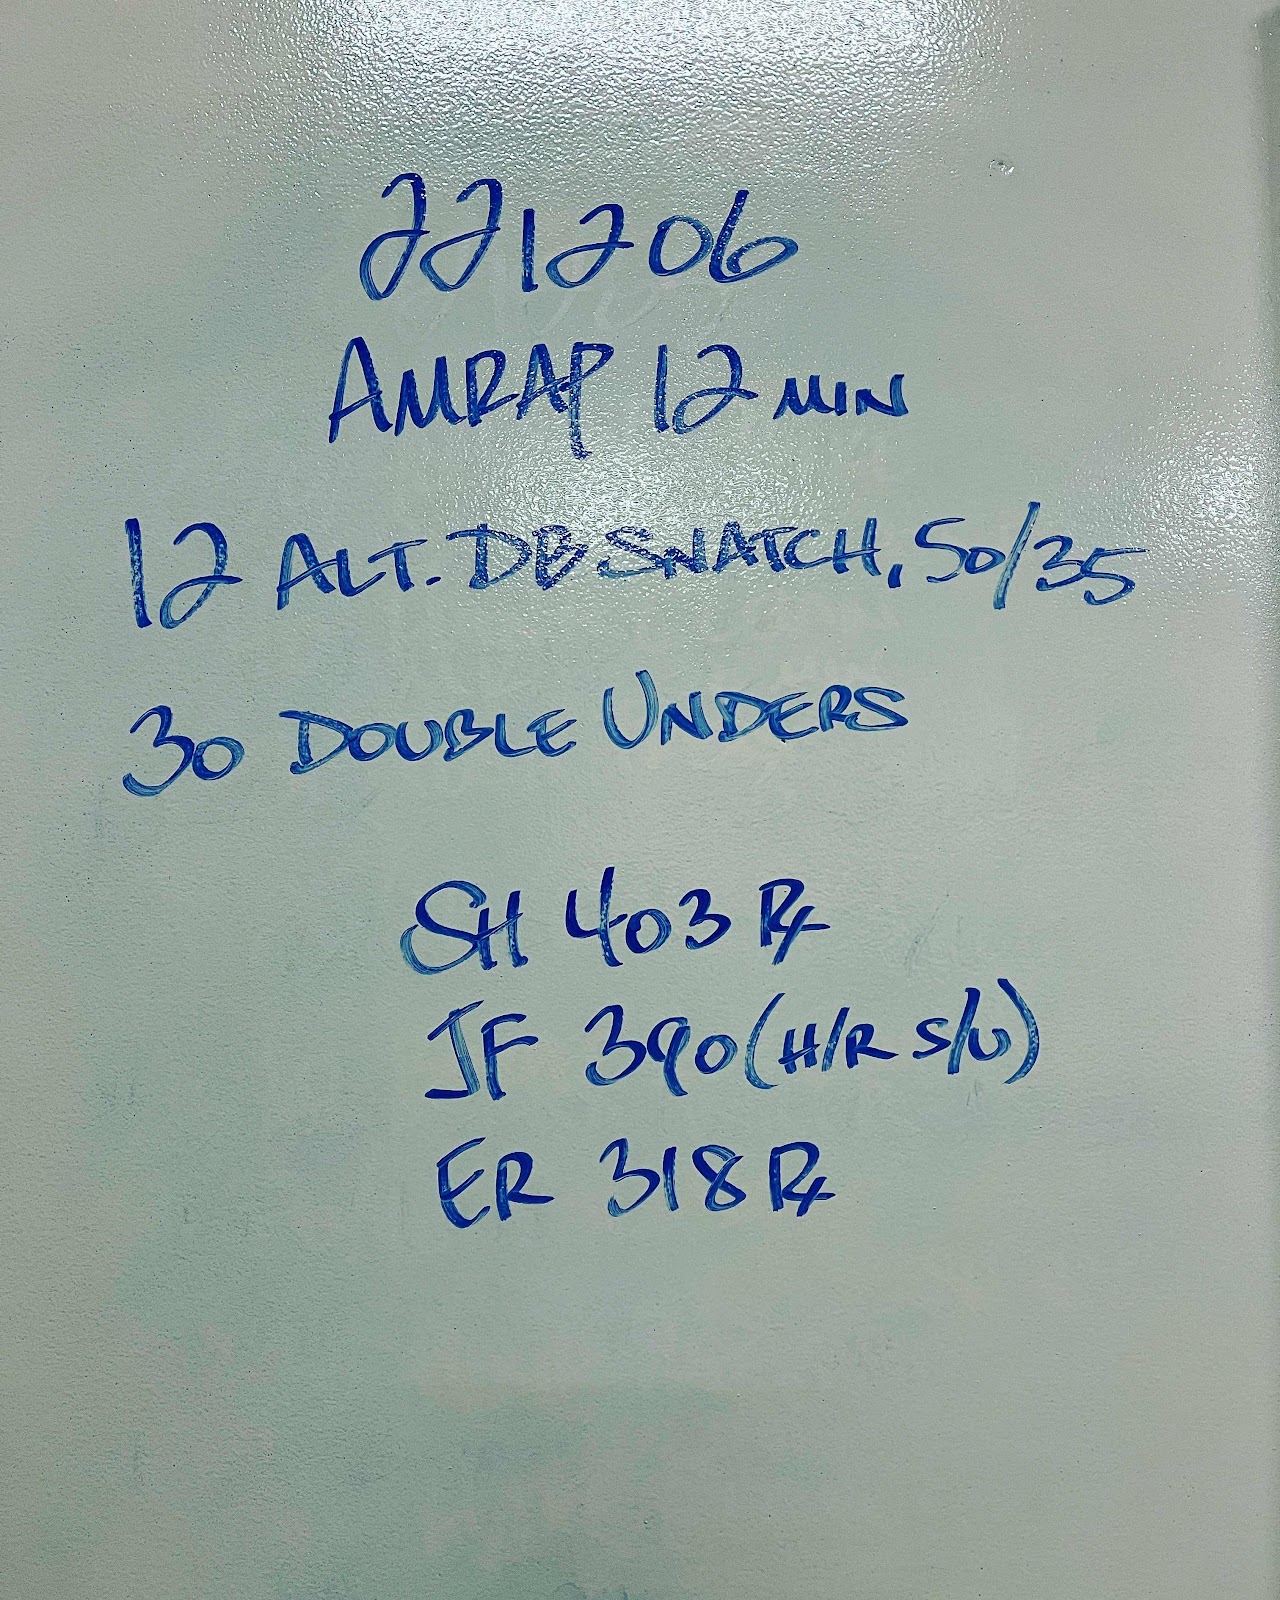 221206
AMRAP 12 MIN
12 ALT. DB SNATCH, 50/35
30 DOUBLE UNDERS
SH 403 Rx
JF 390 (H/R S/U)
ER 318 Rx